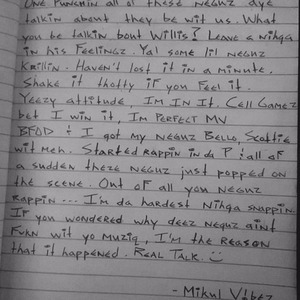 One Punchin all of these neghz aye
talkin about they be wit us. What
you be talkin bout Willis? Leave a Nihga
in his Feelingz. Ya'l some lil neghz
Krillin. Haven't lost it in a minute.
Shake it thotty if you Feel it.
Yeezy attitude, I'm In It. Cell Gamez
bet I win it, I'm Perfect My
BFOD & I got my neghz Bello, Scottie
wit meh. Started rappin in da P & all of
a sudden these neghz just popped on
the scene. Out of all you neghz
rappin... I'm da hardest Nihga snappin.
If you wondered why deez neghz aint
Fukn wit yo muziq, I'm the reason
that it happened. Real Talk. ☺
- Mikul Vibez